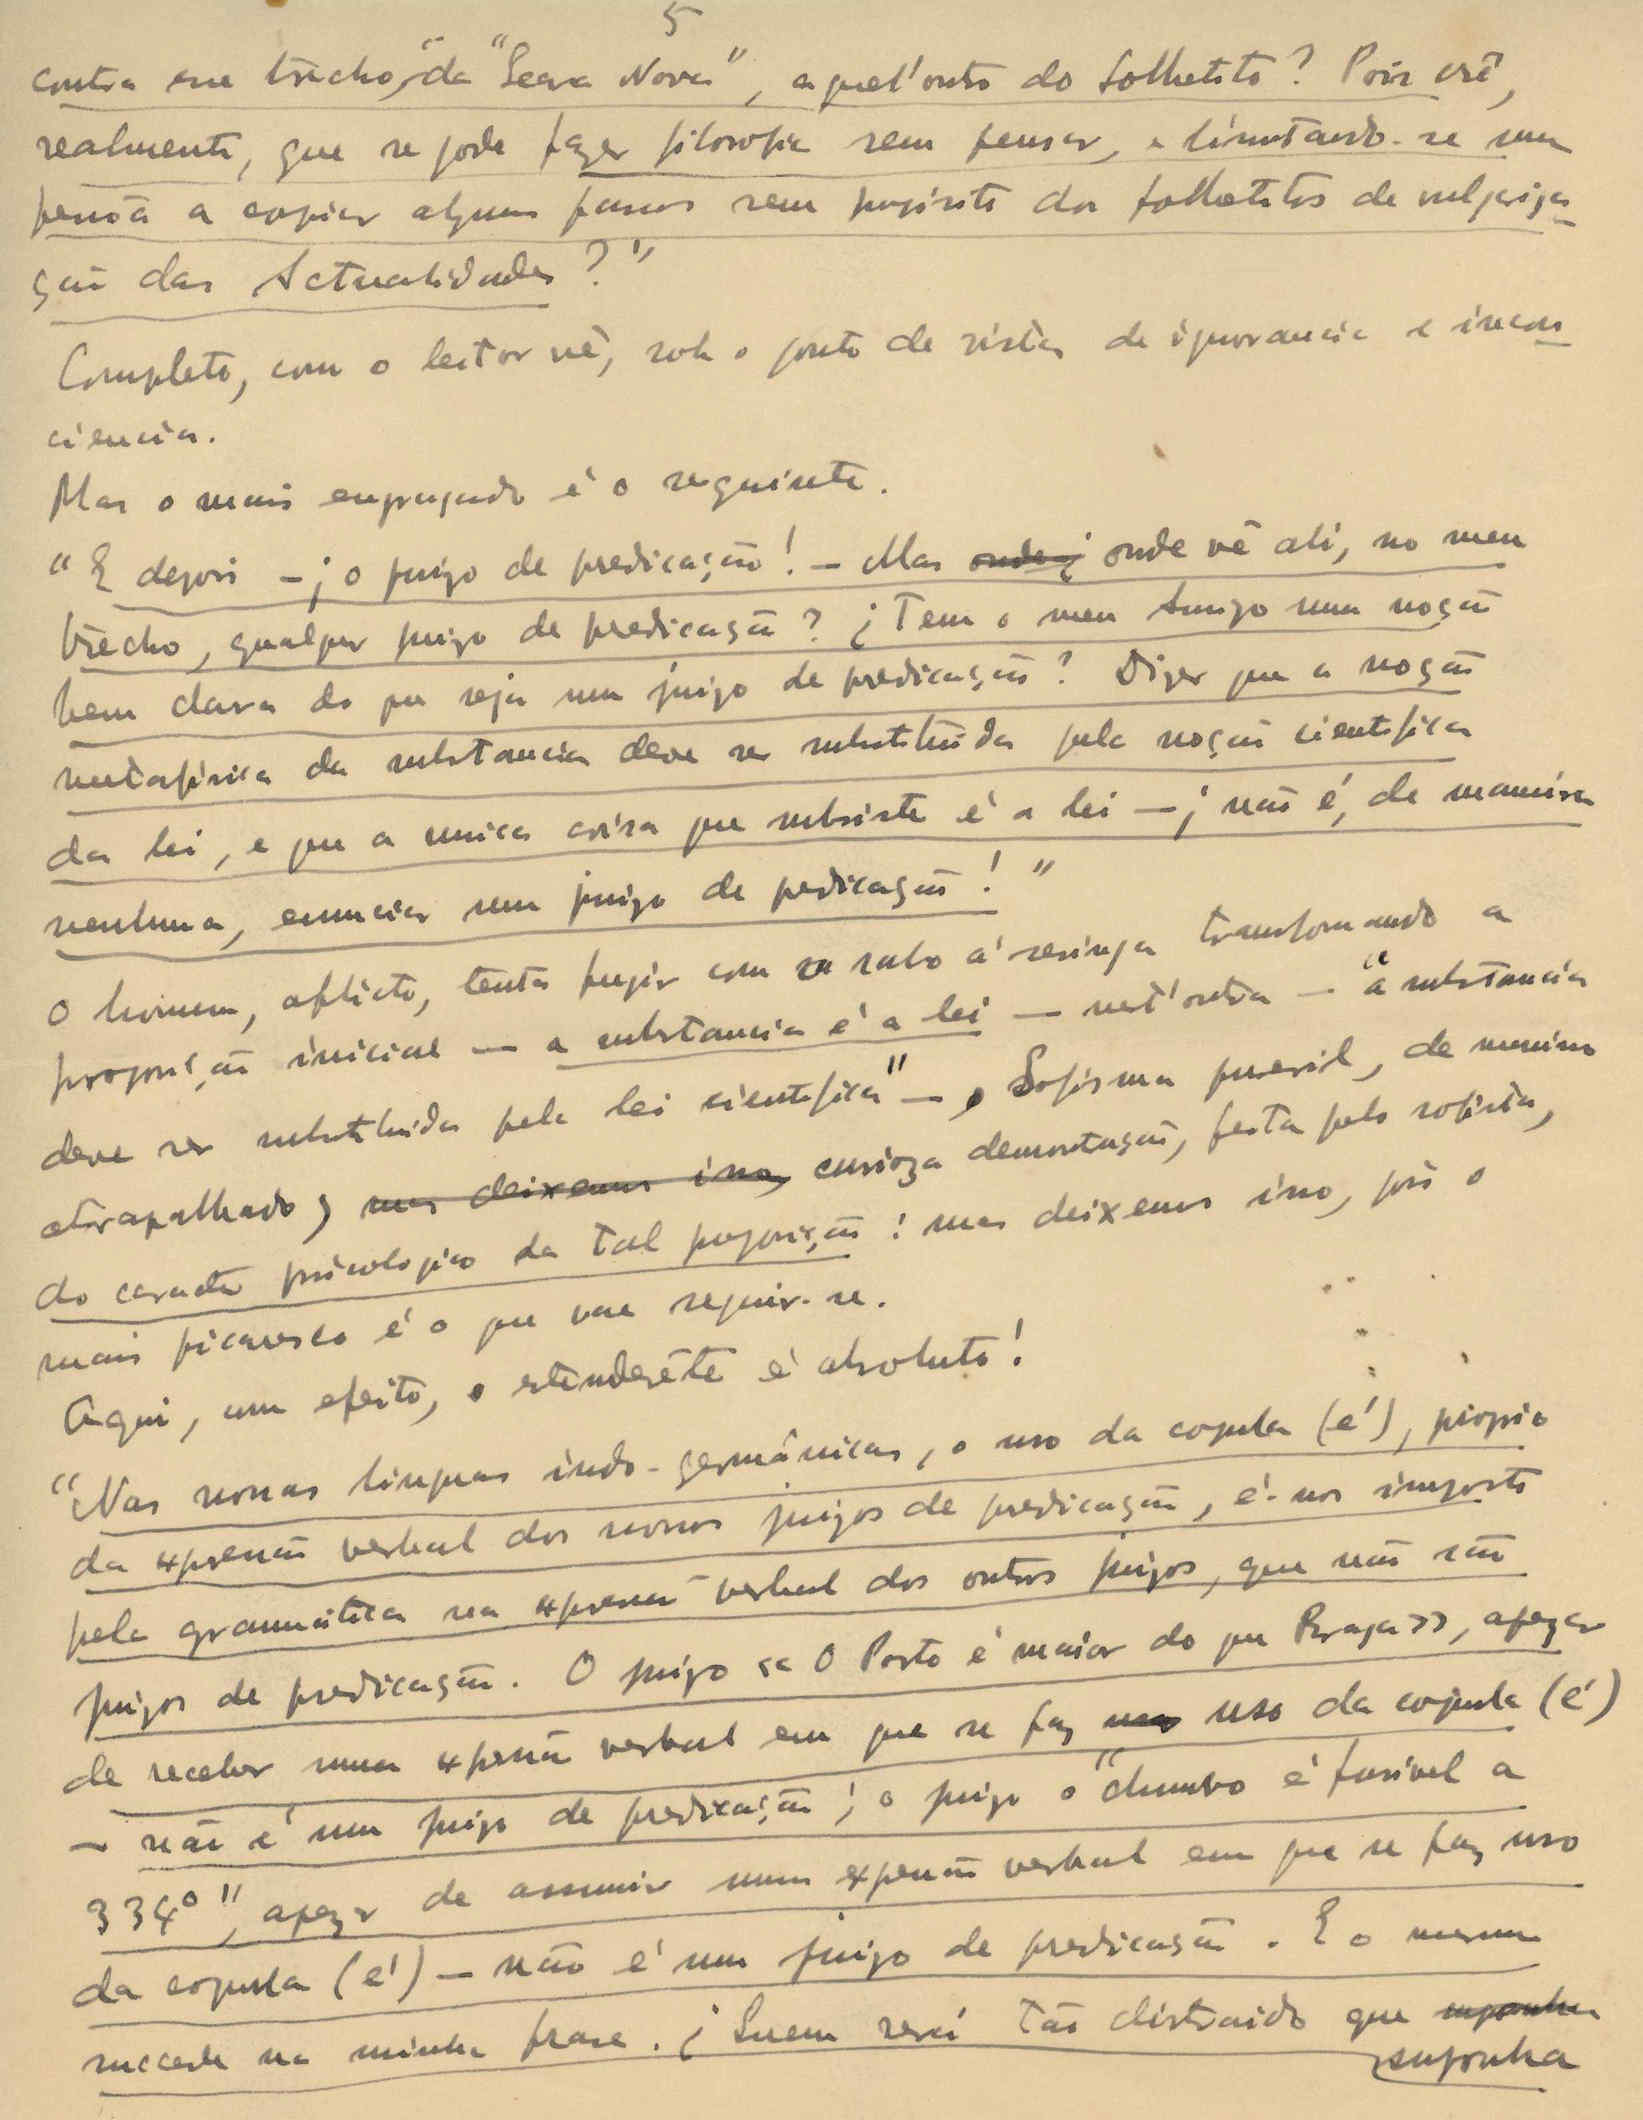 5
contra esse trecho, da "Seara Nova", aquel'outro do folhetito? Pois crê,
realmente, que se pode fazer filosofia sem pensar, e limitando-se uma
pessoa a copiar alguns passos sem proposito dos folhetitos de vulgariza-
ção das Actualidades?"
Completo, como o leitor vê, sob o ponto de vista de ignorancia e incons-
ciencia.
Mas o mais engraçado é o seguinte.
"E depois – ¡o juizo de predicação! – Mas onde ¿ onde vê ali, no meu
trecho, qualquer juizo de predicação? ¿Tem o meu Amigo uma noção
bem clara do que seja um juizo de predicação? Dizer que a noção
metafisica da substancia deve ser substituida pela noção cientifica
da lei, e que a unica coisa que subsiste é a lei – ¡não é, de maneira
nenhuma, enunciar um juizo de predicação!"
O homem, aflicto, tenta fugir com o rabo á seringa transformando a
proposição inicial – a substancia é a lei – nest'outra – "a substancia
deve ser substituida pela lei cientifica" –, Sofisma pueril, de menino
atrapalhado, mas deixemos isso, curioza demonstração, feita pelo sofista,
do caracter psicologico da tal proposição: mas deixemos isso, pois o
mais picaresco é o que vae seguir-se.
Aqui, com efeito, o estenderête é absoluto!
"Nas nossas linguas indo-germânicas, o uso da copula (é), proprio
da expressão verbal dos nossos juizos de predicação, é-nos imposto
pela gramática na expressão verbal dos outros juizos, que não são
juizos de predicação. O juizo «O Porto é maior do que Braga», apezar
de receber uma expressão verbal em que se faz uso da copula (é)
– não é um juizo de predicação; o juizo o "chumbo é fusivel a
334º", apezar de assumir uma expressão verbal em que se faz uso
da copula (é) – não é um juizo de predicação. E o mesmo
succede na minha frase. ¿Quem será tão distraido que suponha
suponha